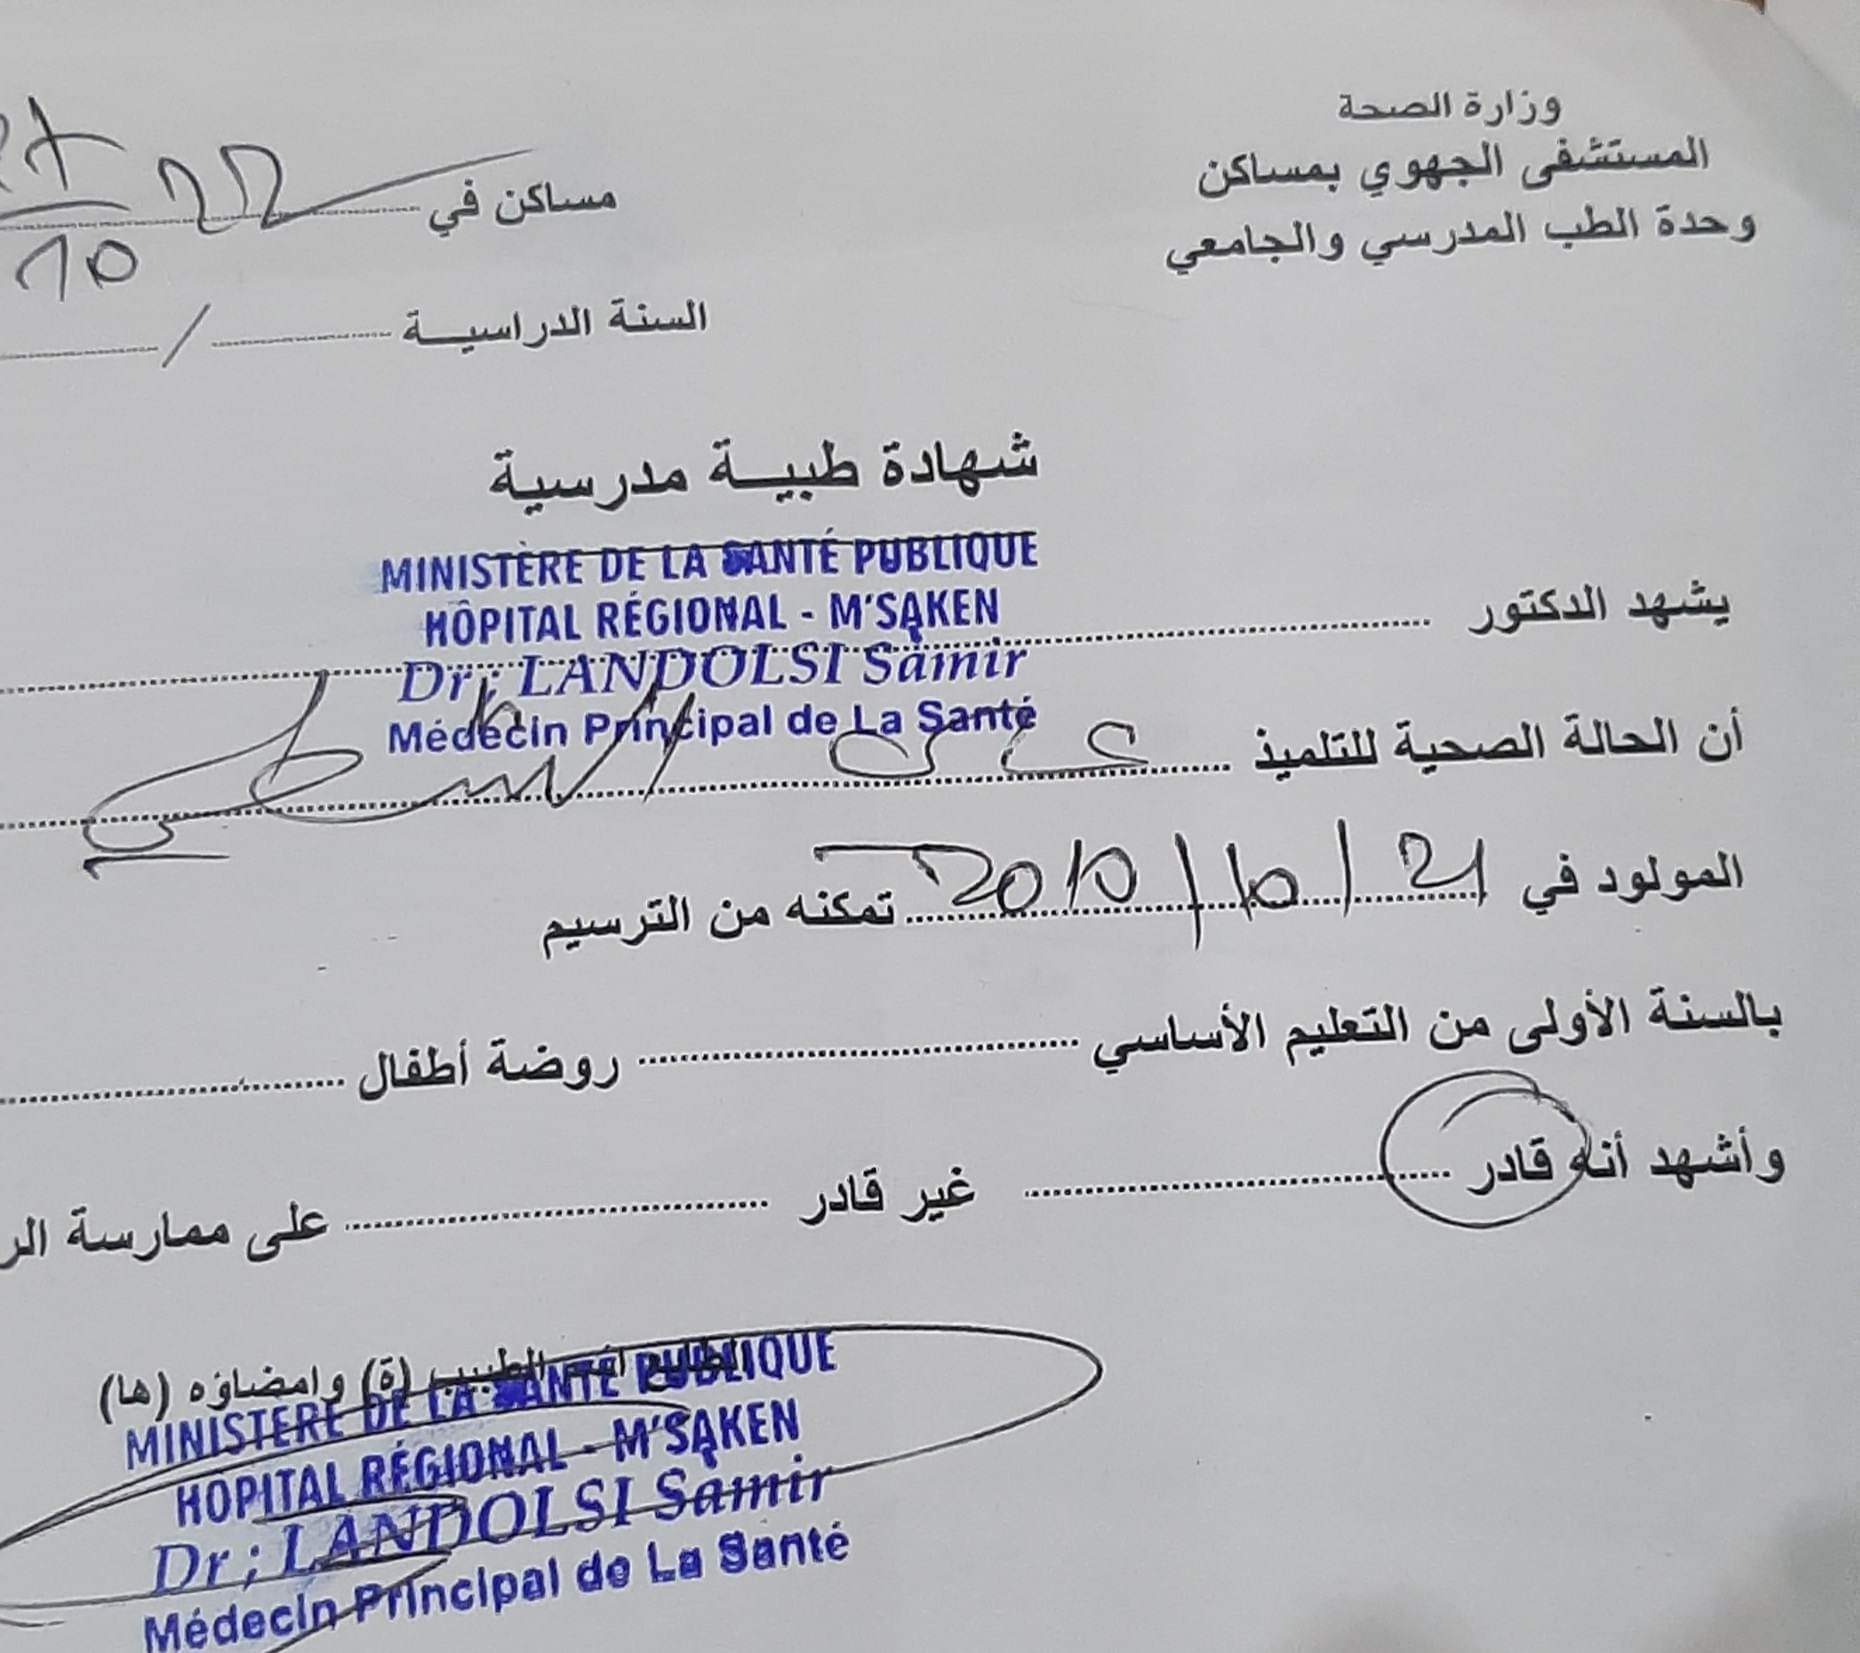 وزارة الصحة
المستشفى الجهوي بمساكن
وحدة الطب المدرسي والجامعي
مساكن في 22
10
السنة الدراسيــة ........ / ........
شهادة طبيــة مدرسية
MINISTÈRE DE LA SANTÉ PUBLIQUE
HÔPITAL RÉGIONAL - M'SAKEN
يشهد الدكتور Dr; LANDOLSI Samir
Médecin Principal de La Santé
أن الحالة الصحية للتلميذ
المولود في 21/10/2010 تمكنه من الترسيم
بالسنة الأولى من التعليم الأساسي ........ روضة أطفال ........
وأشهد أنه قادر ........ غير قادر ........ على ممارسة الر
الطبيب (ة) وامضاؤه (ها)
MINISTÈRE DE LA SANTÉ PUBLIQUE
HÔPITAL RÉGIONAL - M'SAKEN
Dr; LANDOLSI Samir
Médecin Principal de La Santé